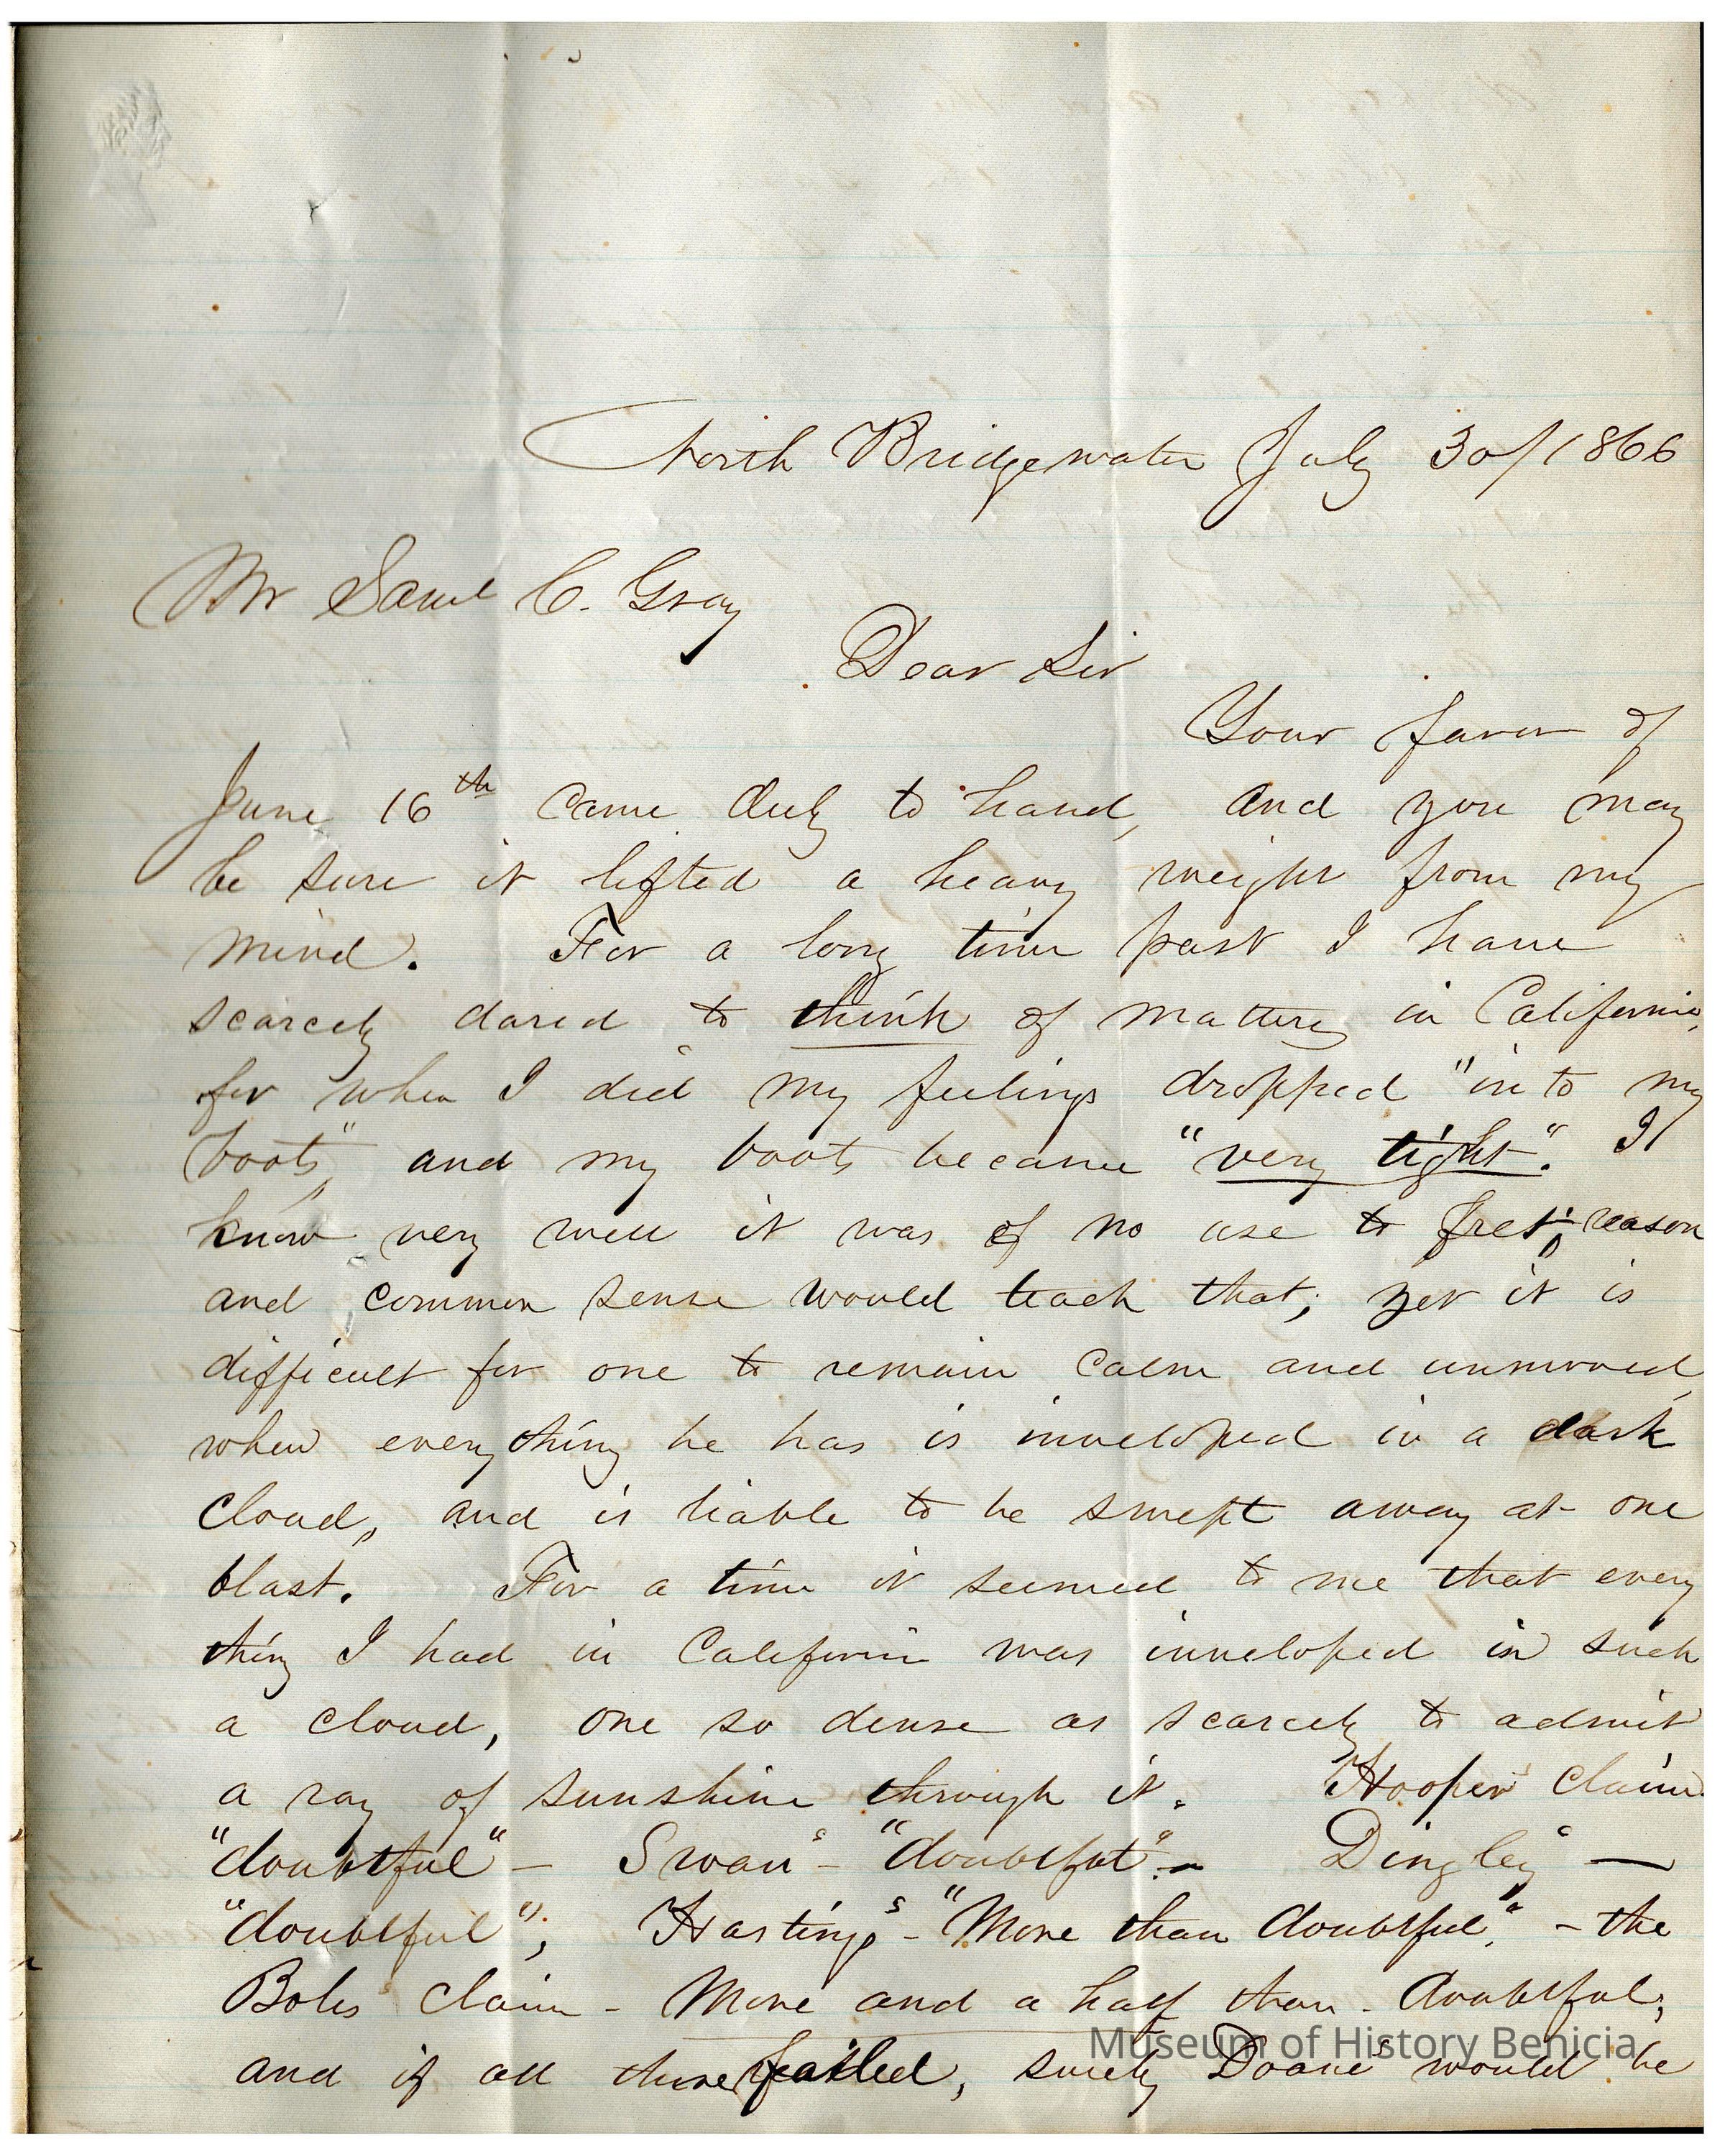 North Bridgewater July 30/1866
Mr Saml C. Gray
Dear Sir
Your favor of
June 16th came duly to hand, and you may
be sure it lifted a heavy weight from my
mind. For a long time past I have
scarcely dared to think of matters in California,
for when I did my feelings dropped "in to my
boots" and my boots became "very tight". I
know very well it was of no use to fret; reason
and common sense would teach that; yet it is
difficult for one to remain calm and unmoved,
when every thing he has is inveloped in a dark
cloud, and is liable to be swept away at one
blast. For a time it seemed to me that every
thing I had in California was inveloped in such
a cloud, one so dense as scarcely to admit
a ray of sunshine through it. Hoopers claim
"doubtful" - Swan's - "doubtful". - Dingley's —
"doubtful"; Hasting's - "More than doubtful". - the
Boles claim - More and a half than - doubtful;
and if all these failed, surely Doane's would be
Museum of History Benicia